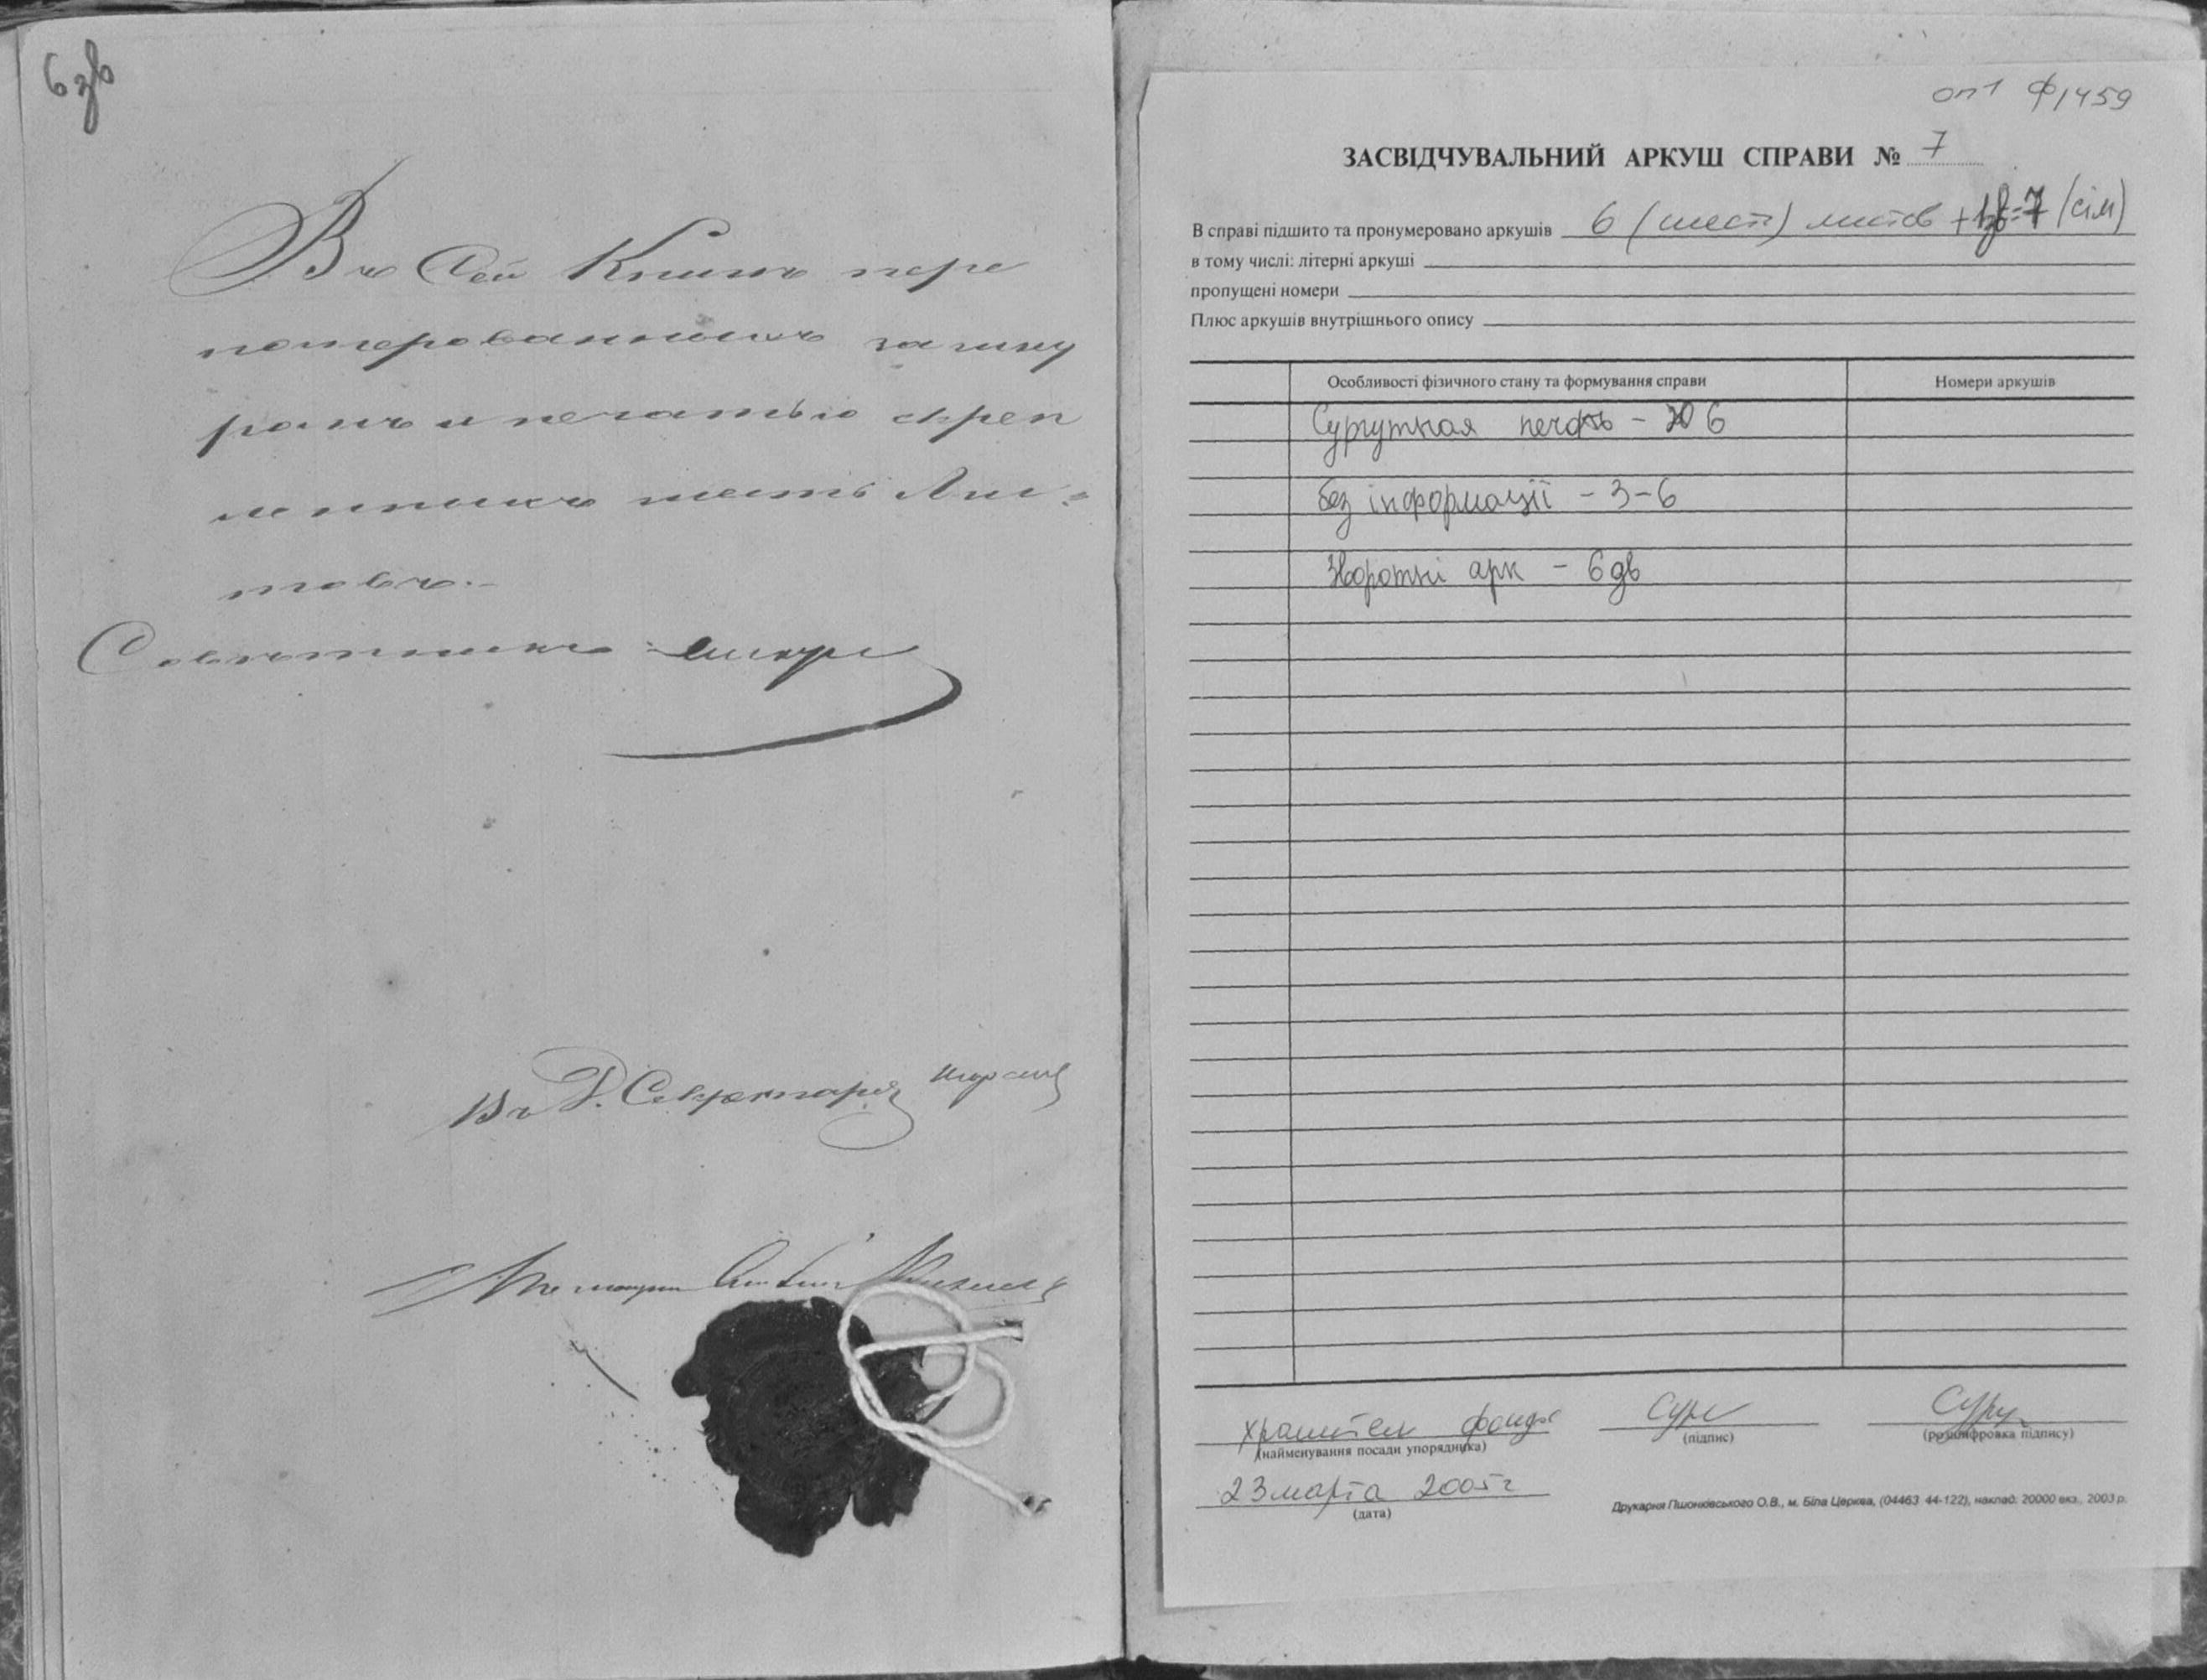 6 зв
Въ Сей Книгѣ пере
номерованныхъ за шну
ромъ и печатью скреп
ленныхъ шесть Лис-
товъ.-
Совѣтникъ
Въ Д. Секретаря
оп 1 ф 1459
ЗАСВІДЧУВАЛЬНИЙ АРКУШ СПРАВИ № 7
В справі підшито та пронумеровано аркушів 6 (шесть) листов + 1зв = 7 (сім)
в тому числі: літерні аркуші
пропущені номери
Плюс аркушів внутрішнього опису
Особливості фізичного стану та формування справи Номери аркушів
Сургутная печать - 6
без інформації - 3-6
Зворотні арк - 6 зв
хранитель фонда
(найменування посади упорядника) (підпис) (розшифровка підпису)
23 марта 2005 г
(дата)
Друкарня Пшонківського О.В., м. Біла Церква, (04463 44-122), наклад: 20000 екз., 2003 р.